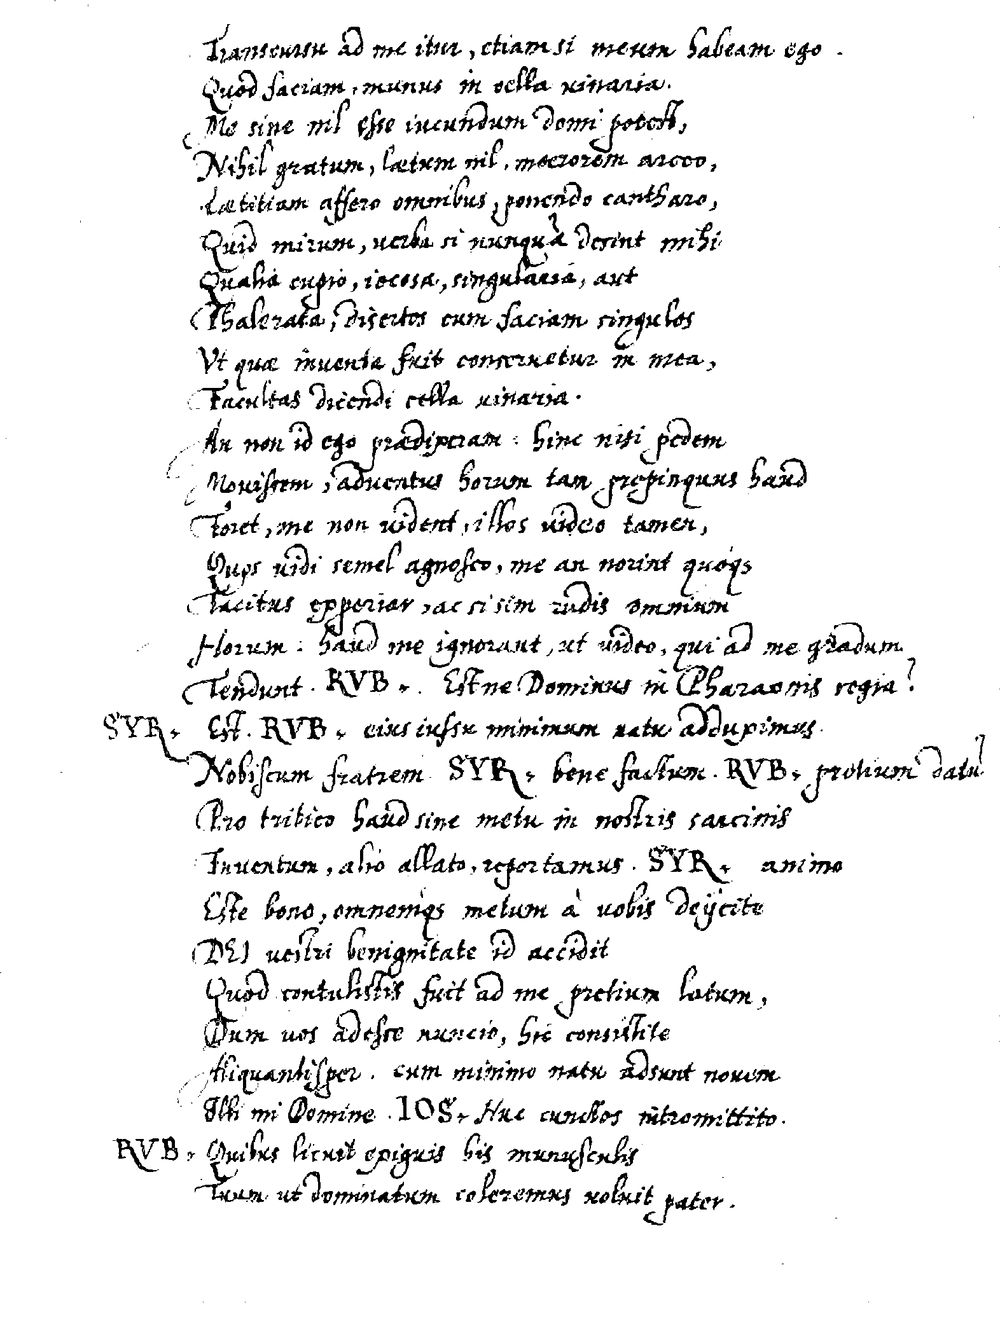 Transcursu ad me itur, etiam si meum habeam ego.
Quod faciam, munus in cella vinaria.
Me sine nil esse iucundum domi potest,
Nihil gratum, lætum nil, moerorem arceo,
Lætitiam affero omnibus, ponendo cantharo,
Quid mirum, verba si nunquā desint mihi
Qualia cupio, iocosa, singularia, aut
Phalerata, disertos cum faciam singulos
Vt quæ inventa fuit conservetur in mea,
Facultas dicendi cella vinaria.
An non id ego prædixeram: hinc nisi pedem
Movissem, adventus horum tam propinquus haud
Foret, me non vident, illos video tamen,
Quos vidi semel agnosco, me an norint quoqȝ
Tacitus experiar, ac si sim rudis omnium
Horum: haud me ignorant, ut video, qui ad me gradum
Tendunt. RVB. Estne Dominus in Pharaonis regia?
SYR. Est. RVB. eius iussu minimum natu adduximus
Nobiscum fratrem SYR. bene factum. RVB. pretium datū
Pro tritico haud sine metu in nostris sarcinis
Inventum, alio allato, reportamus. SYR. animo
Este bono, omnemqȝ metum à vobis deijcite
DEI vestri benignitate id accidit
Quod contulistis fuit ad me pretium latum,
Dum vos adesse nuncio, hic consistite
Aliquantisper. cum minimo natu adsunt novem
Illi mi Domine. IOS. Huc cunctos intromittito.
RVB. Quibus licuit exiguis his munusculis
Tuum ut dominatum coleremus voluit pater.